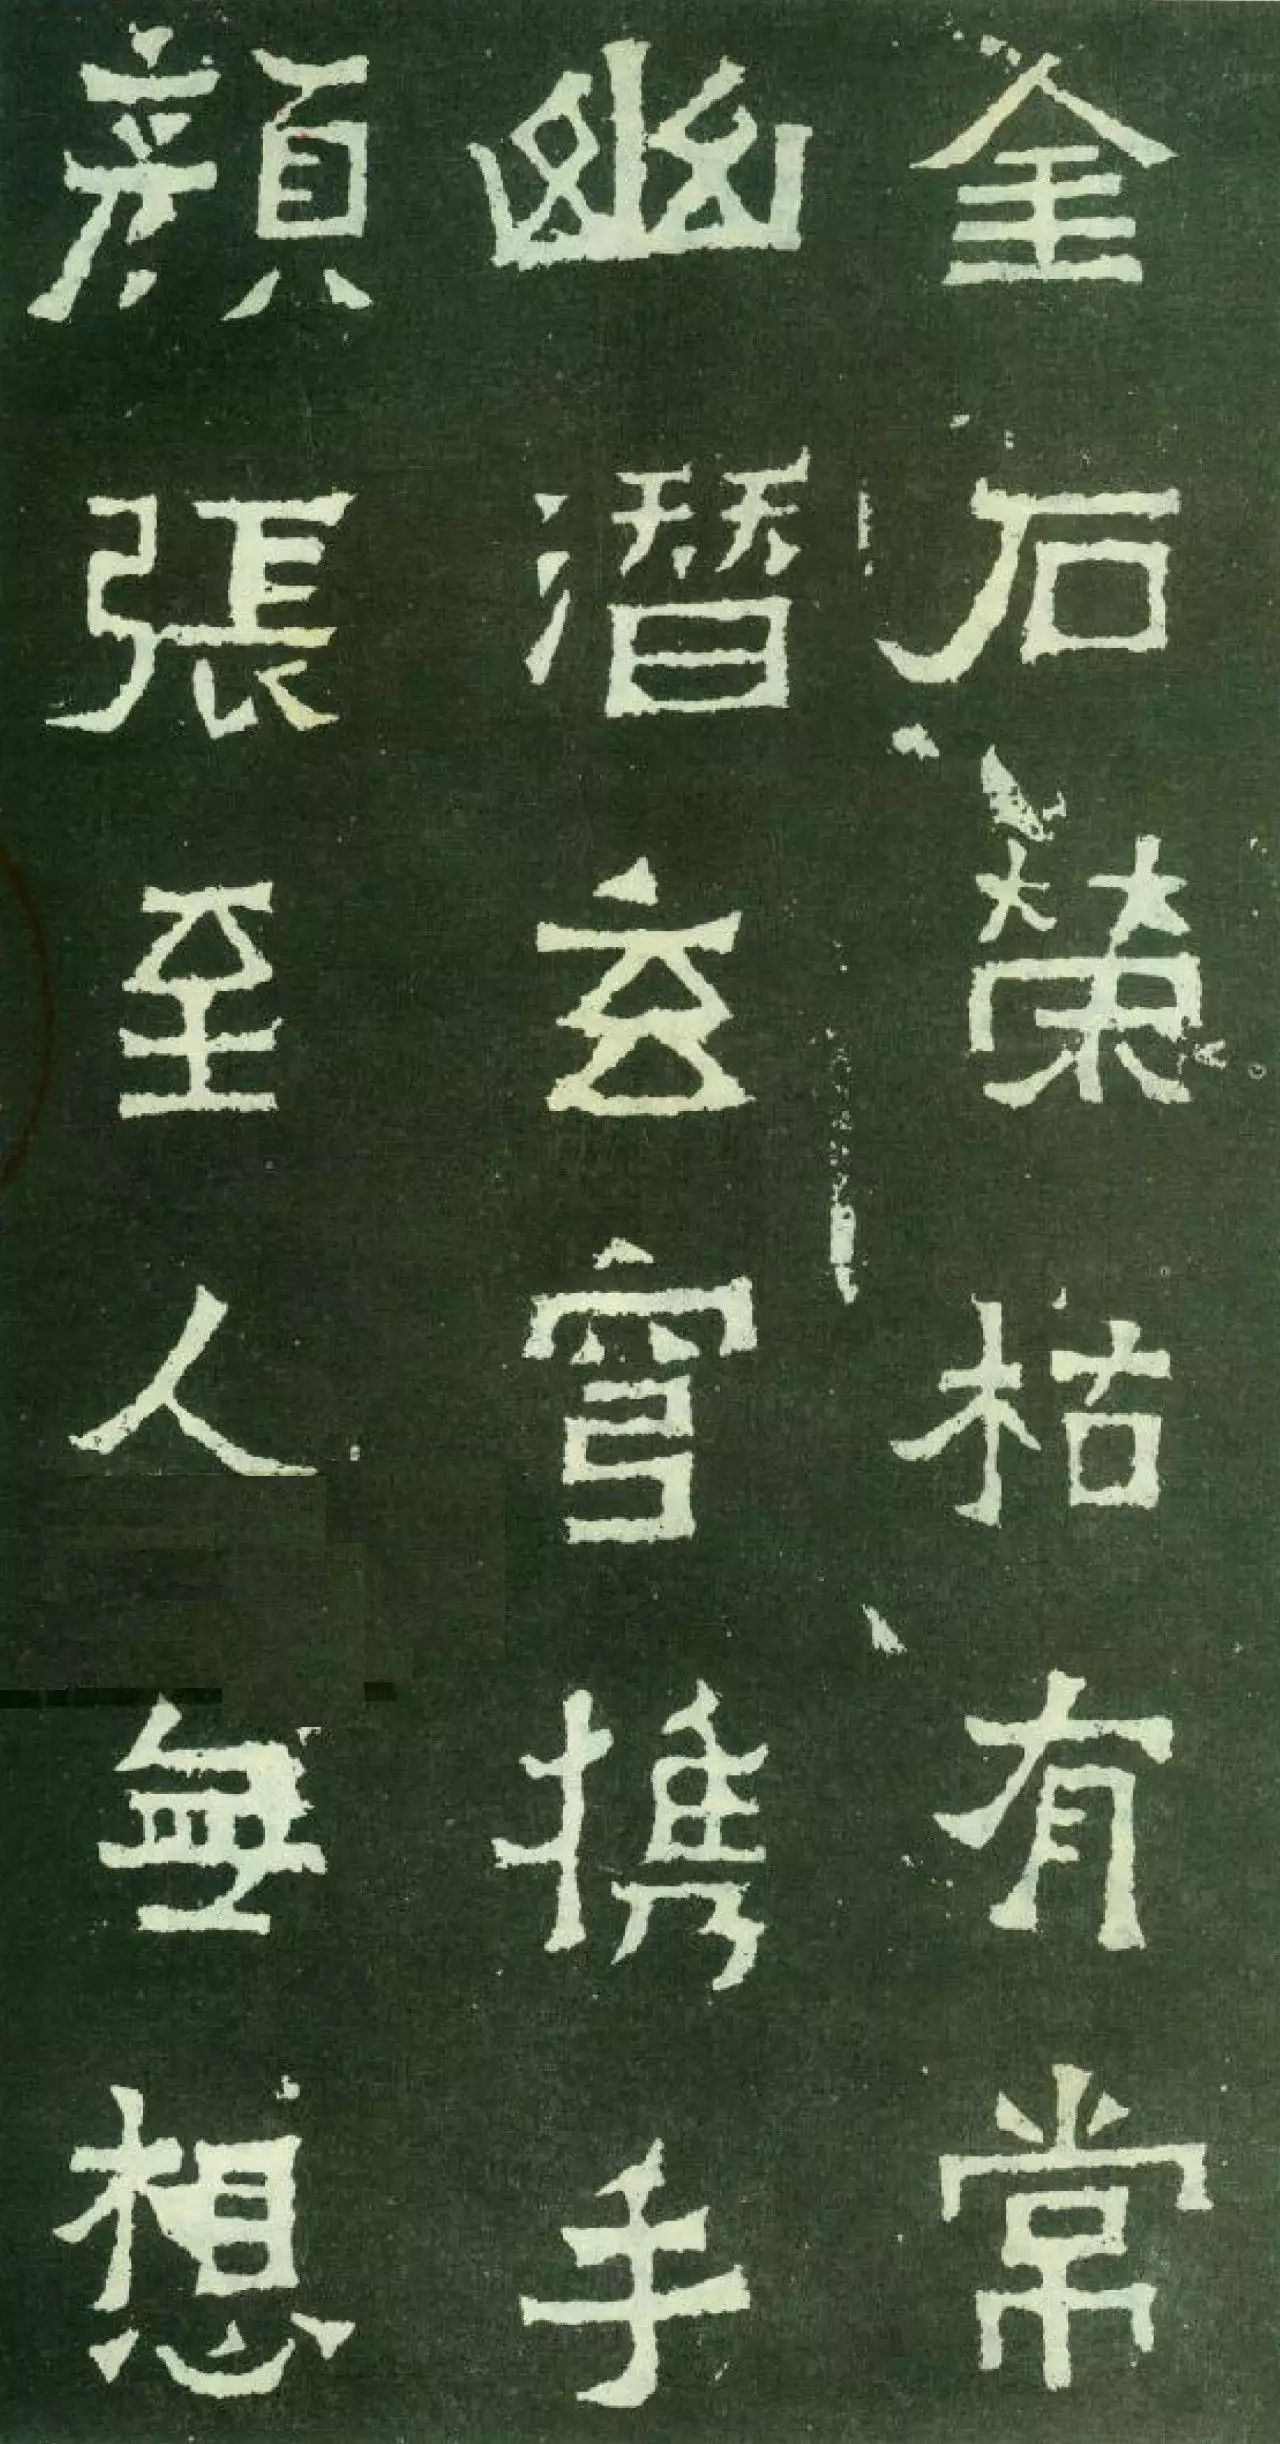 金石榮枯有常
幽潛玄穹攜手
顏張至人無想